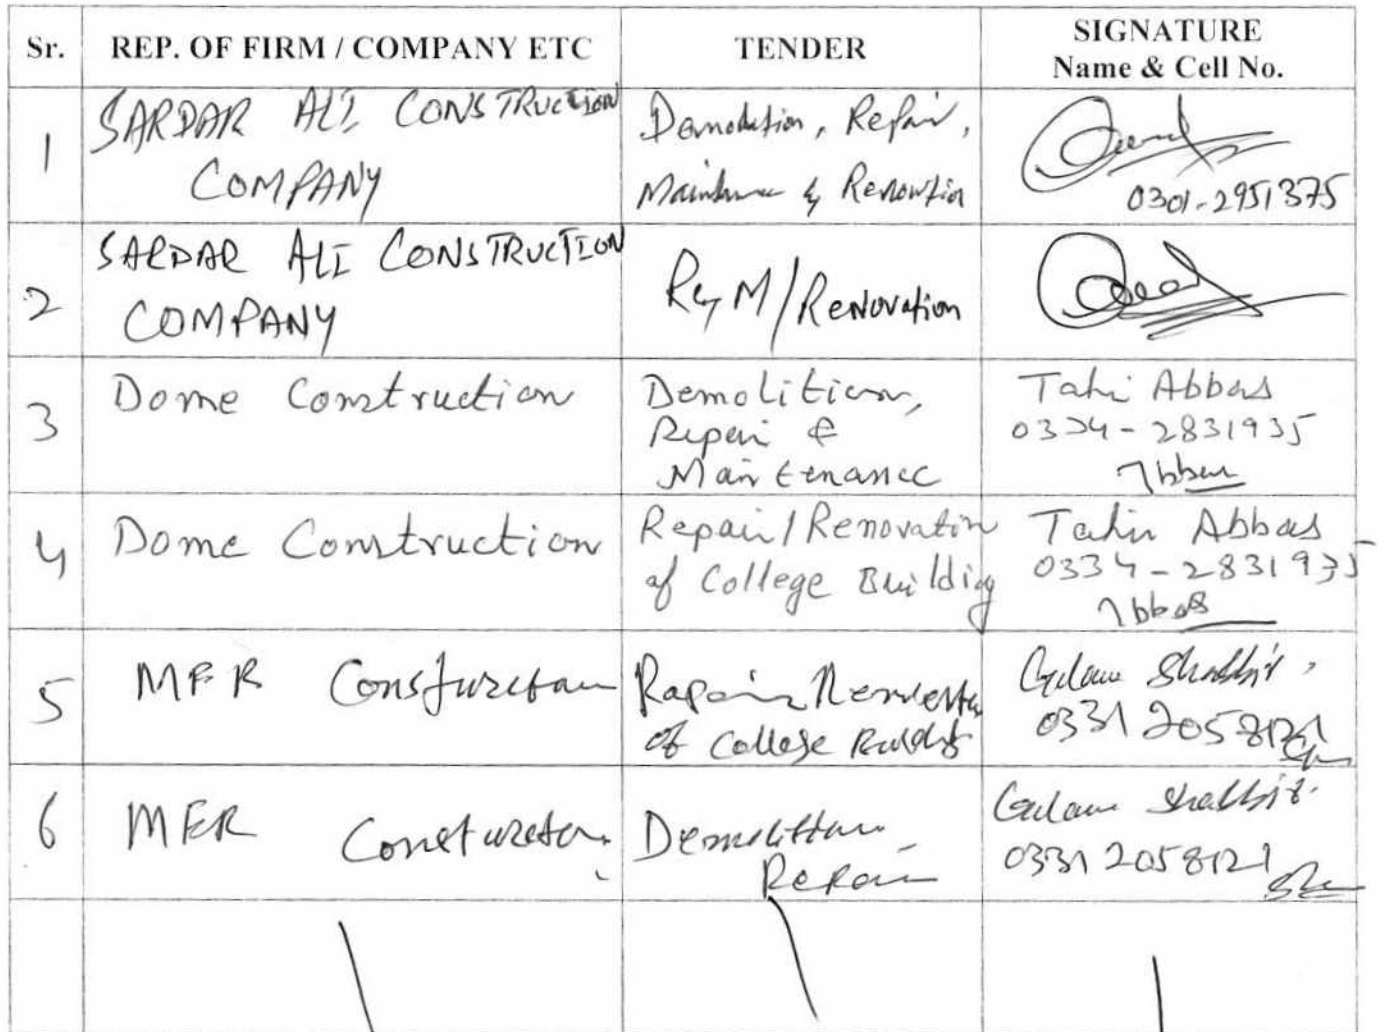 Sr.
REP. OF FIRM / COMPANY ETC
TENDER
SIGNATURE
Name & Cell No.
1
SARDAR ALI CONSTRUCTION
COMPANY
Demolution, Repair,
Maintunance & Renovation
0301-2951375
2
SARDAR ALI CONSTRUCTION
COMPANY
R & M / Renovation
3
Dome Construction
Demolition,
Repair &
Maintenance
Tahir Abbas
0334-2831935
4
Dome Construction
Repair / Renovation
of College Building
Tahir Abbas
0334-2831935
Abbas
5
MFR
Repair
of College
Shabbir
0331 2058121
6
MFR
Repair
Shabbir
0331 2058121